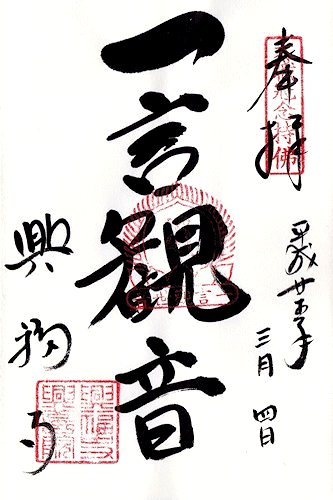 奉拝
平成廿五年
三月四日
一言観音
興福寺